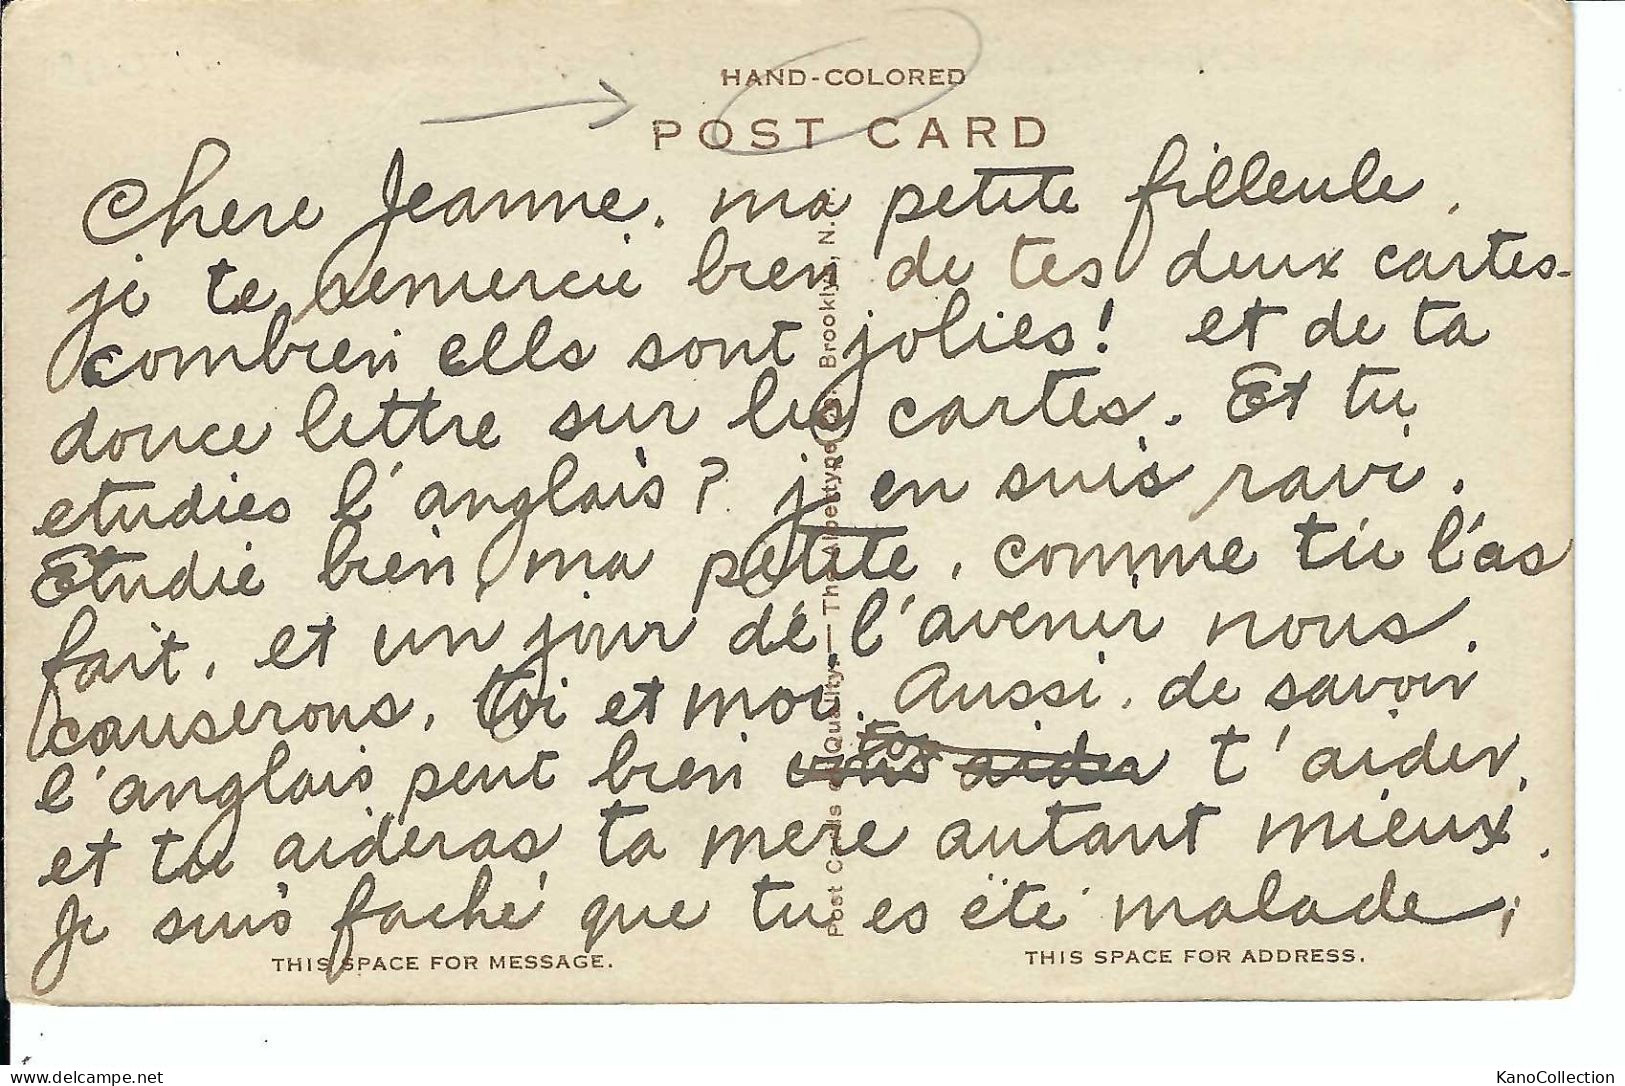 HAND-COLORED
POST CARD
Chere Jeanne, ma petite filleule,
je te remercie bien de tes deux cartes-
combien ells sont jolies! et de ta
douce lettre sur les cartes. Et tu
etudies l'anglais? j'en suis ravi.
Etudie bien, ma petite, comme tu l'as
fait, et un jour de l'avenir nous
causerons, toi et moi. Aussi, de savoir
l'anglais peut bien t'aider,
et tu aideras ta mere autant mieux.
Je suis faché que tu es été malade;
THIS SPACE FOR MESSAGE.
THIS SPACE FOR ADDRESS.
Post Cards of Quality. — The Albertype Co., Brooklyn, N.Y.
KanoCollection
www.delcampe.net